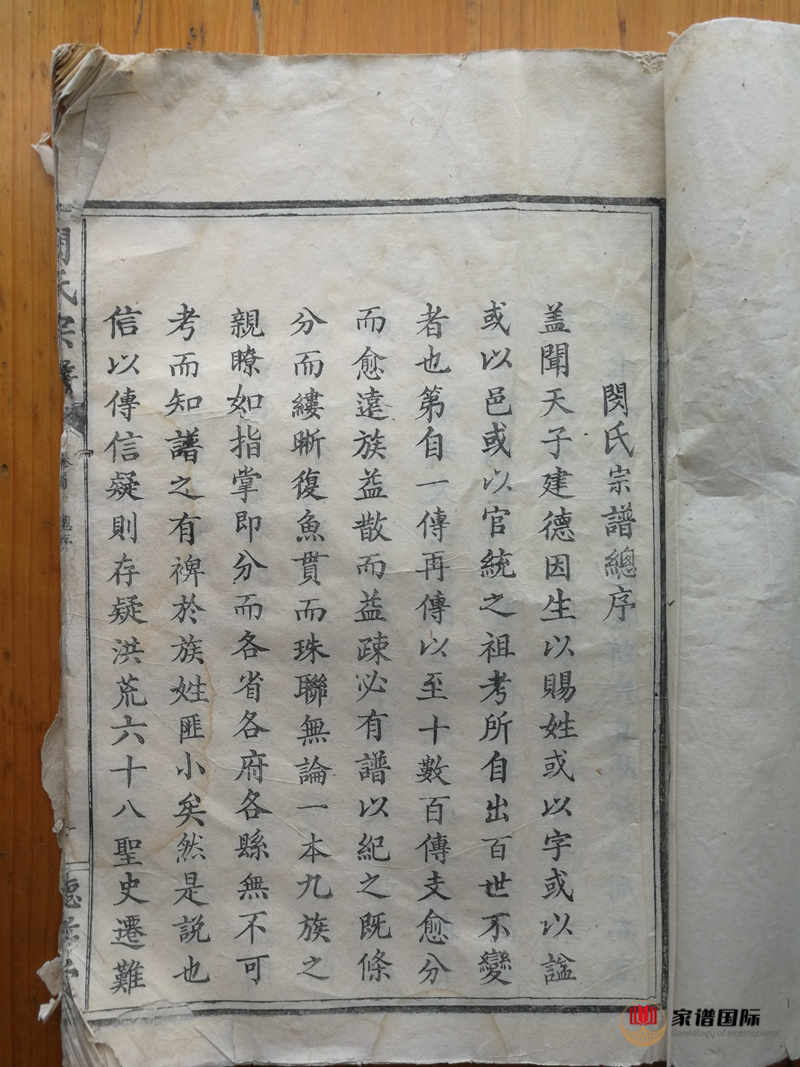 閔氏宗譜總序
盖聞天子建德因生以賜姓或以字或以謚
或以邑或以官統之祖考所自出百世不變
者也第自一傳再傳以至十數百傳支愈分
而愈遠族益散而益踈必有譜以紀之既條
分而縷晰復魚貫而珠聯無論一本九族之
親瞭如指掌即分而各省各府各縣無不可
考而知譜之有裨於族姓匪小矣然是說也
信以傳信疑則存疑洪荒六十八聖史遷難
閔氏宗譜
卷首
總序
家谱国际
Genealogy of International